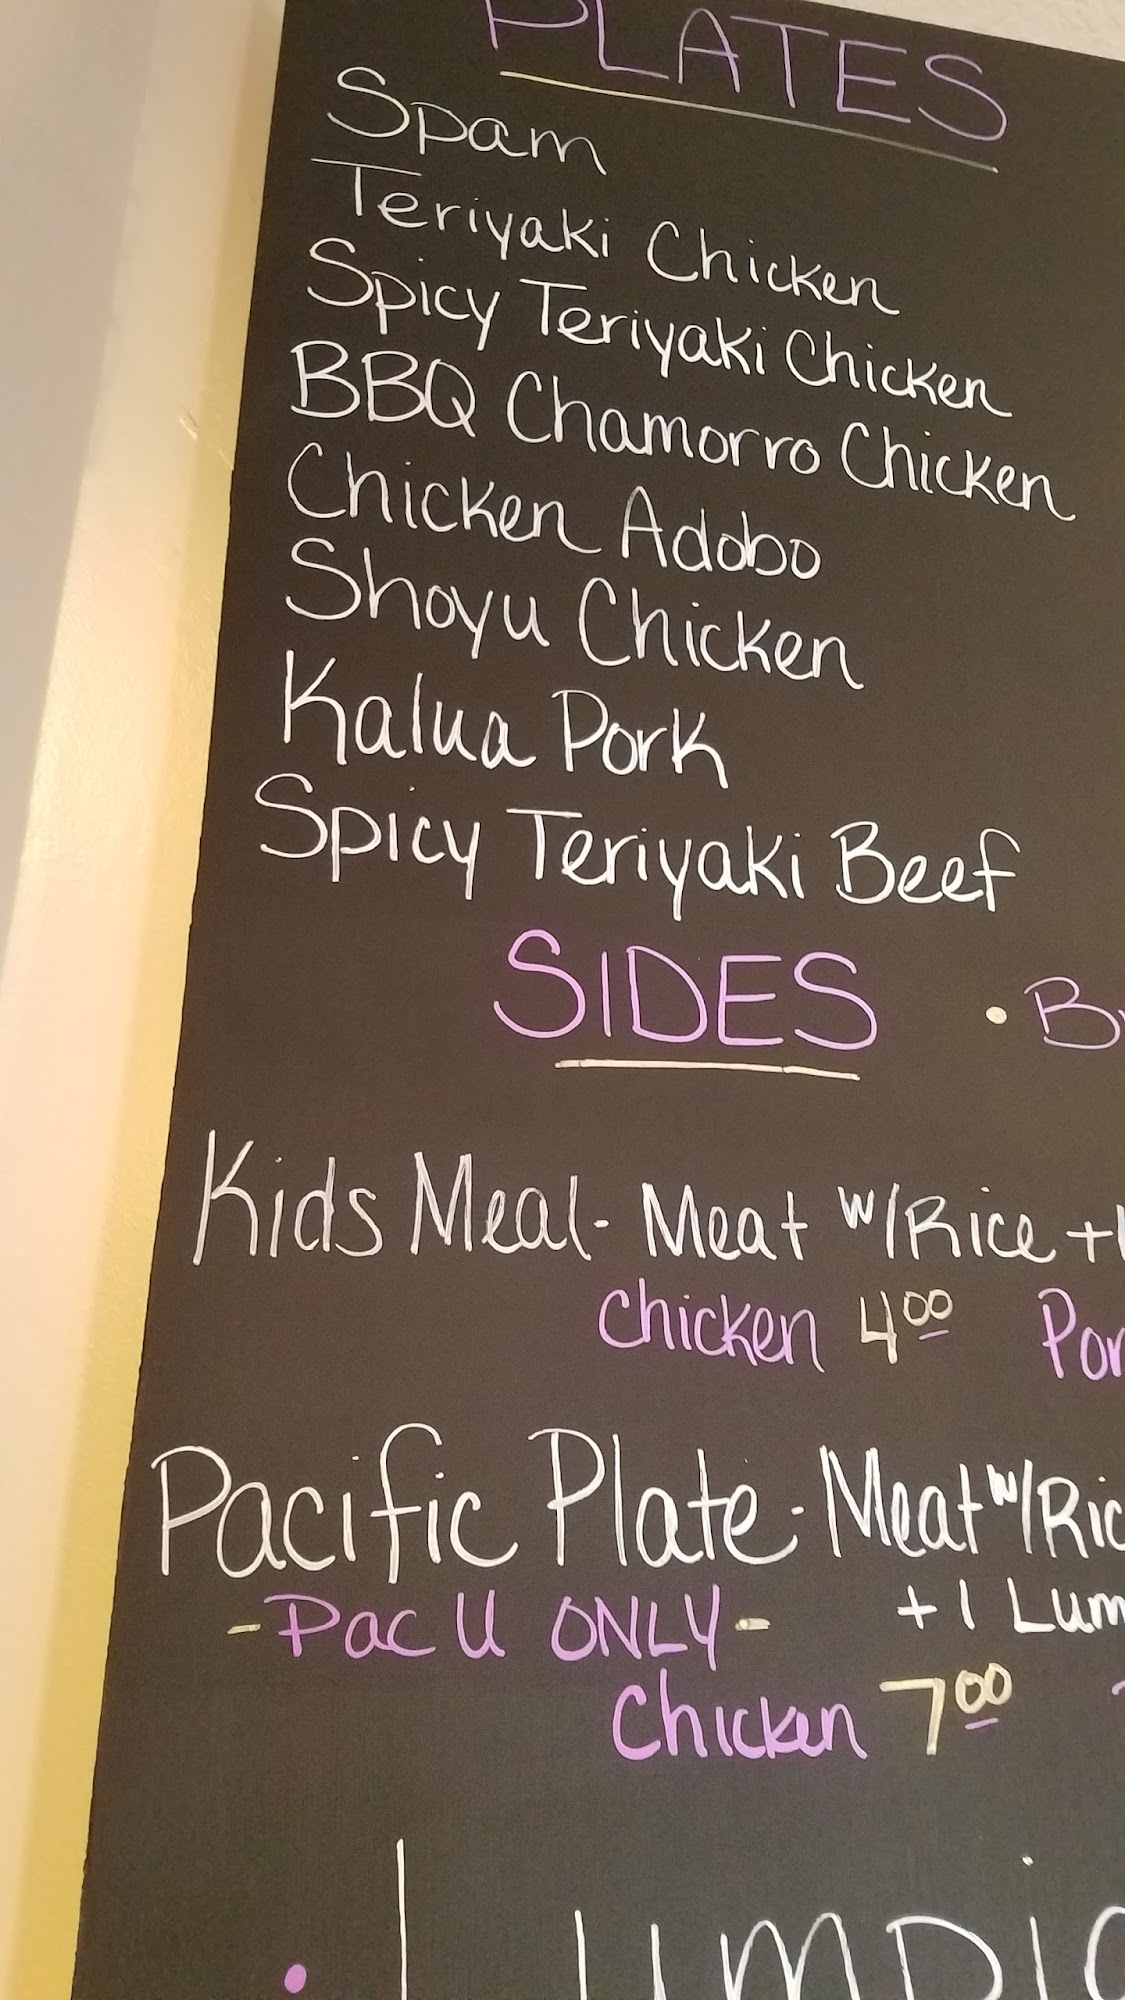 PLATES
Spam
Teriyaki Chicken
Spicy Teriyaki Chicken
BBQ Chamorro Chicken
Chicken Adobo
Shoyu Chicken
Kalua Pork
Spicy Teriyaki Beef
SIDES
Kids Meal - Meat w/Rice +
Chicken 4.00
Pacific Plate - Meat w/
- Pac U ONLY - + 1
Chicken 7.00